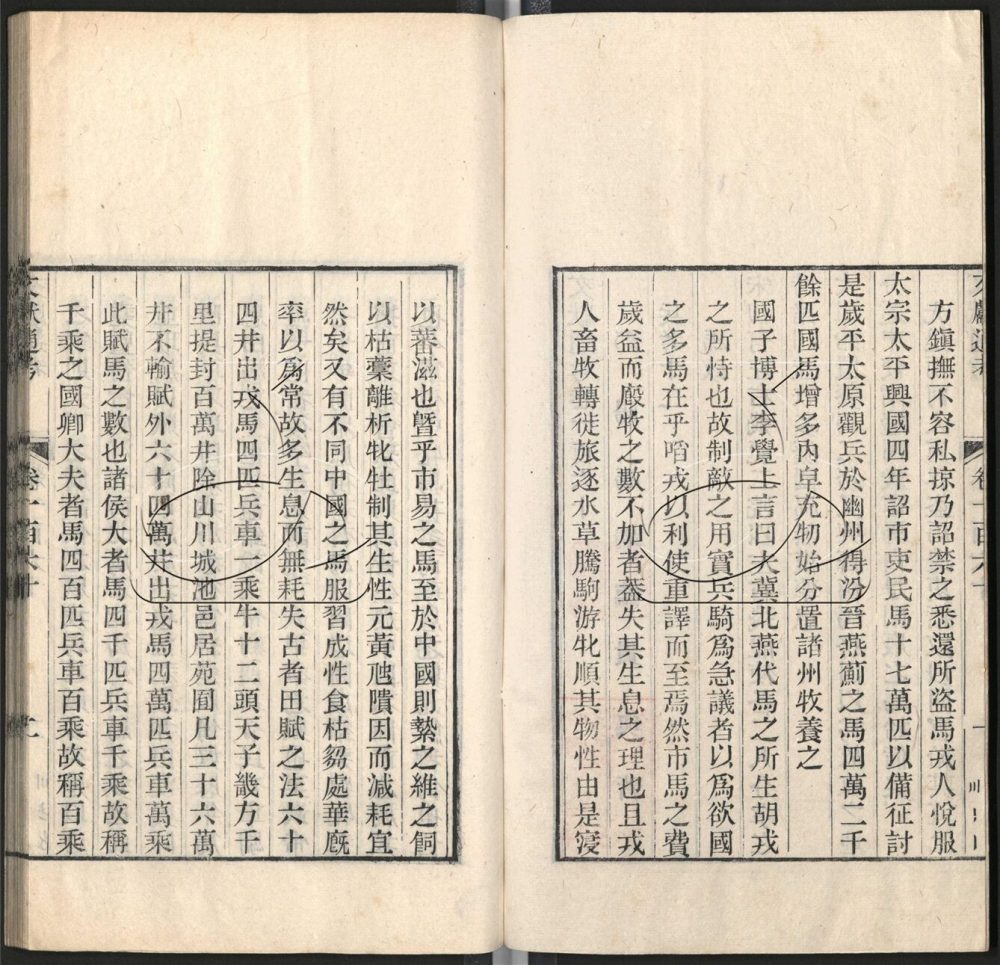 方鎮撫不容私掠乃詔禁之悉還所盜馬戎人悅服
太宗太平興國四年詔市吏民馬十七萬匹以備征討
是歲平太原觀兵於幽州得汾晉燕薊之馬四萬二千
餘匹國馬增多內皁充牣始分置諸州牧養之
國子博士李覺上言曰夫冀北燕代馬之所生胡戎
之所恃也故制敵之用實兵騎爲急議者以爲欲國
之多馬在乎啗戎以利使重譯而至焉然市馬之費
歲益而廄牧之數不加者蓋失其生息之理也且戎
人畜牧轉徙旅逐水草騰駒游牝順其物性由是寖
以蕃滋也曁乎市易之馬至於中國則縶之維之飼
以枯藁離析牝牡制其生性元黃虺隤因而減耗宜
然矣又有不同中國之馬服習成性食枯芻處華廐
率以爲常故多生息而無耗失古者田賦之法六十
四井出戎馬四匹兵車一乘牛十二頭天子畿方千
里提封百萬井除山川城池邑居苑囿凡三十六萬
井不輸賦外六十四萬井出戎馬四萬匹兵車萬乘
此賦馬之數也諸侯大者馬四千匹兵車千乘故稱
千乘之國卿大夫者馬四百匹兵車百乘故稱百乘
文獻通考 卷一百六十